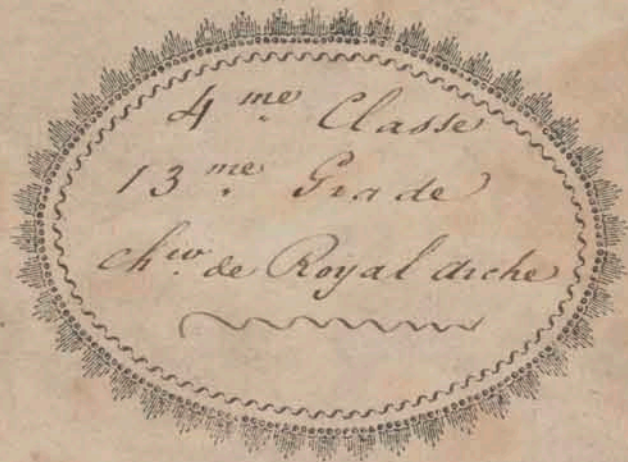 4.me Classe
13.me Grade
ch.er de Royal Arche